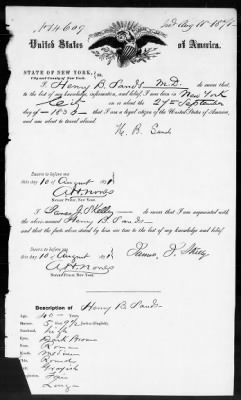 No 14609
United States of America.
STATE OF NEW YORK,
City and County of New York.
I Henry B. Sands M.D. do swear that,
to the best of my knowledge, information, and belief I am born in New York
on or about the 27th September
day of 1830 that I am a legal citizen of the United States of America,
and am about to travel abroad
H. B. Sands
Sworn to before me
this day 10 of August
Notary Public, New York.
I James do swear that I am acquainted with
the above named Henry B. Sands
and that the facts above stated by him are true to the best of my knowledge and belief
Sworn to before me
this day 10 of August
Notary Public, New York.
Description of Henry B. Sands
Age, 40 Years
Stature, 5 Feet 9½ Inches (English)
Forehead, high
Eyes, Dark Brown
Nose, Roman
Mouth, Medium
Chin, Round
Hair, Grayish
Complexion,
Face, Long